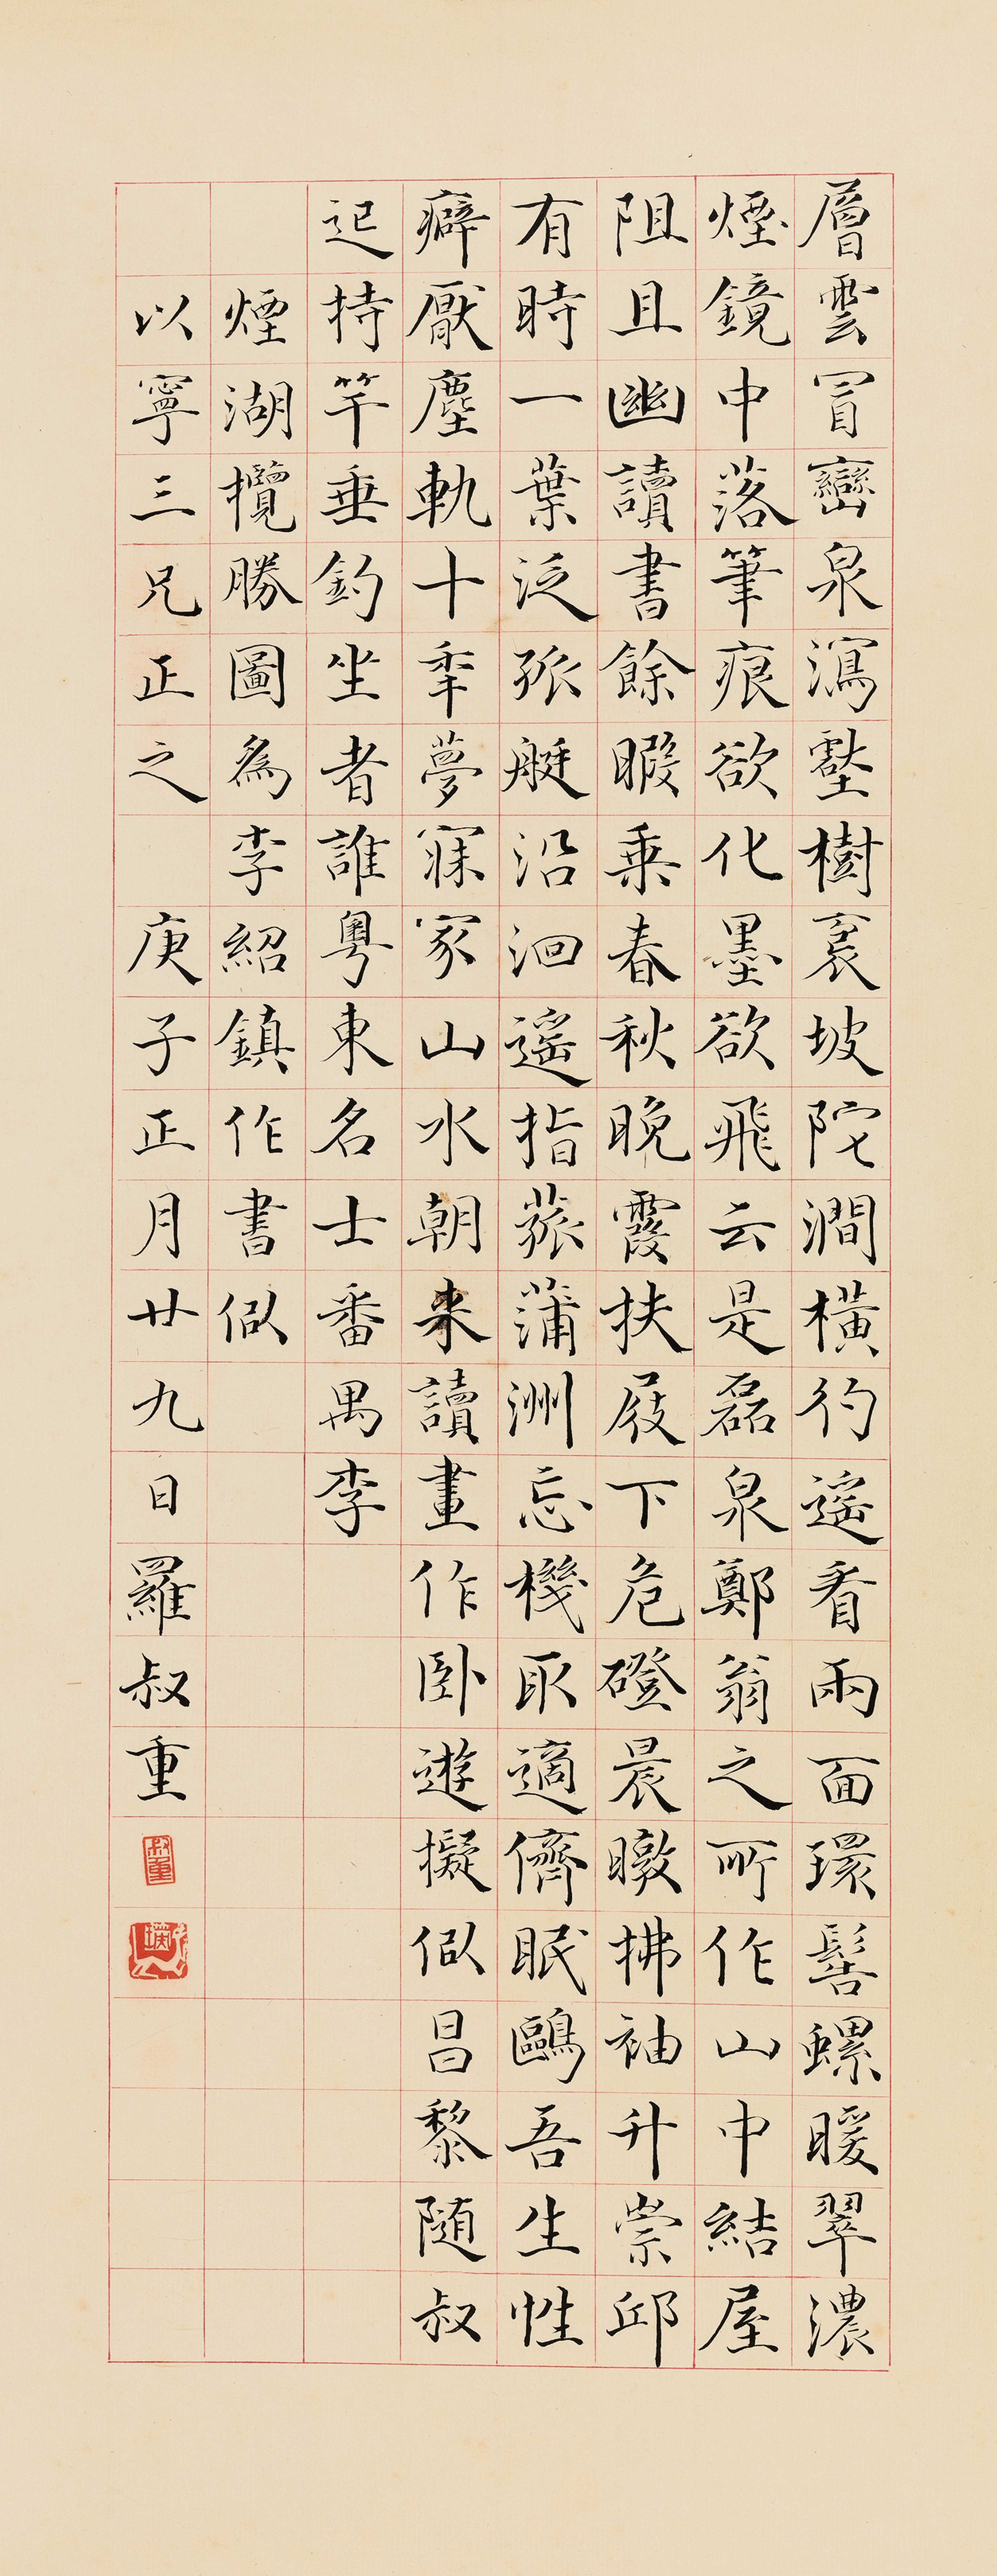 層雲冒巒泉瀉壑樹裹坡陀澗橫彴遙看兩面環髻螺暖翠濃
煙鏡中落筆痕欲化墨欲飛云是磊泉鄭翁之所作山中結屋
阻且幽讀書餘暇乘春秋晚霞扶屐下危磴晨暾拂袖升崇邱
有時一葉泛孤艇沿洄遙指菰蒲洲忘機取適儕眠鷗吾生性
癖厭塵軌十年夢寐家山水朝來讀畫作臥遊擬似昌黎隨叔
起持竿垂釣坐者誰粵東名士番禺李
煙湖攬勝圖為李紹鎮作書似
以寧三兄正之 庚子正月廿九日羅叔重
叔重